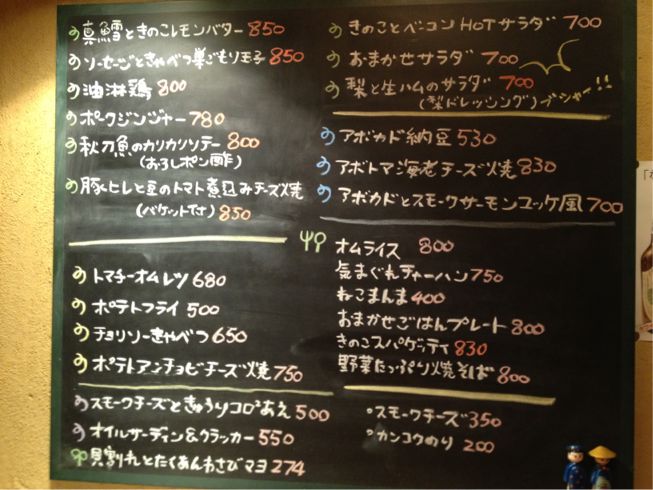 真鱈ときのこレモンバター 850
ソーセージときゃべつ巣ごもり玉子 850
油淋鶏 800
ポークジンジャー 780
秋刀魚のカリカリソテー 800
(おろしポン酢)
豚ヒレと豆のトマト煮込みチーズ焼
(バケット付) 850
トマチーオムレツ 680
ポテトフライ 500
チョリソーきゃべつ 650
ポテトアンチョビチーズ焼 750
スモークチーズときゅうりコロコロあえ 500
オイルサーディン&クラッカー 550
貝割れとたくあんわさびマヨ 274
きのことベーコンHOTサラダ 700
おまかせサラダ 700
梨と生ハムのサラダ 700
(梨ドレッシング)ブシャー!!
アボカド納豆 530
アボトマ海老チーズ焼 830
アボカドとスモークサーモンユッケ風 700
オムライス 800
気まぐれチャーハン 750
ねこまんま 400
おまかせごはんプレート 800
きのこスパゲッティ 830
野菜たっぷり焼そば 800
スモークチーズ 350
カンコクのり 200